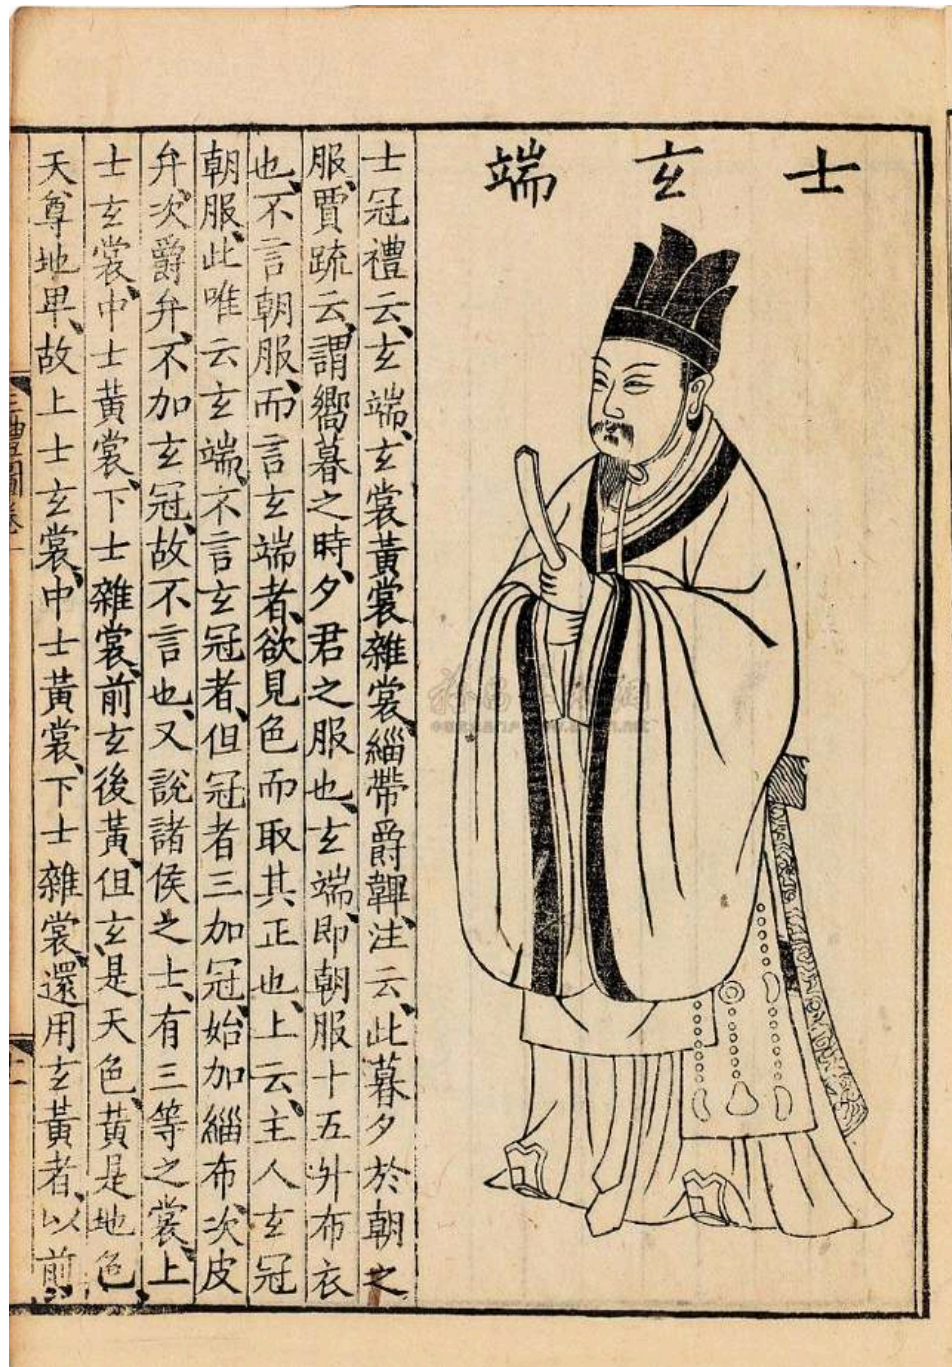 士玄端
士冠禮云、玄端、玄裳黃裳雜裳、緇帶爵韠、注云、此暮夕於朝之
服、賈疏云、謂嚮暮之時、夕君之服也、玄端、即朝服十五升布衣
也、不言朝服、而言玄端者、欲見色而取其正也、上云、主人玄冠
朝服、此唯云玄端、不言玄冠者、但冠者三加冠、始加緇布、次皮
弁、次爵弁、不加玄冠、故不言也、又說諸侯之士、有三等之裳、上
士玄裳、中士黃裳、下士雜裳、前玄後黃、但玄、是天色、黃是地色、
天尊地卑、故上士玄裳、中士黃裳、下士雜裳、還用玄黃者、以前
三禮圖卷一